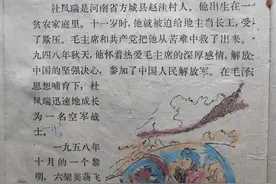 杜凤瑞是河南省方城县赵洼村人。他出生在一
贫农家庭里。十一岁时，他就被迫给地主当长工，受
了欺压。毛主席和共产党把他从苦难中救了出来。
九四八年秋天，他怀着热爱毛主席的深厚感情，解放
中国的坚强决心，参加了中国人民解放军。在毛泽
思想哺育下，杜
凤瑞迅速地成长
为一名空军战
士。
一九五八年
十月的一个黎
明，六架美蒋飞